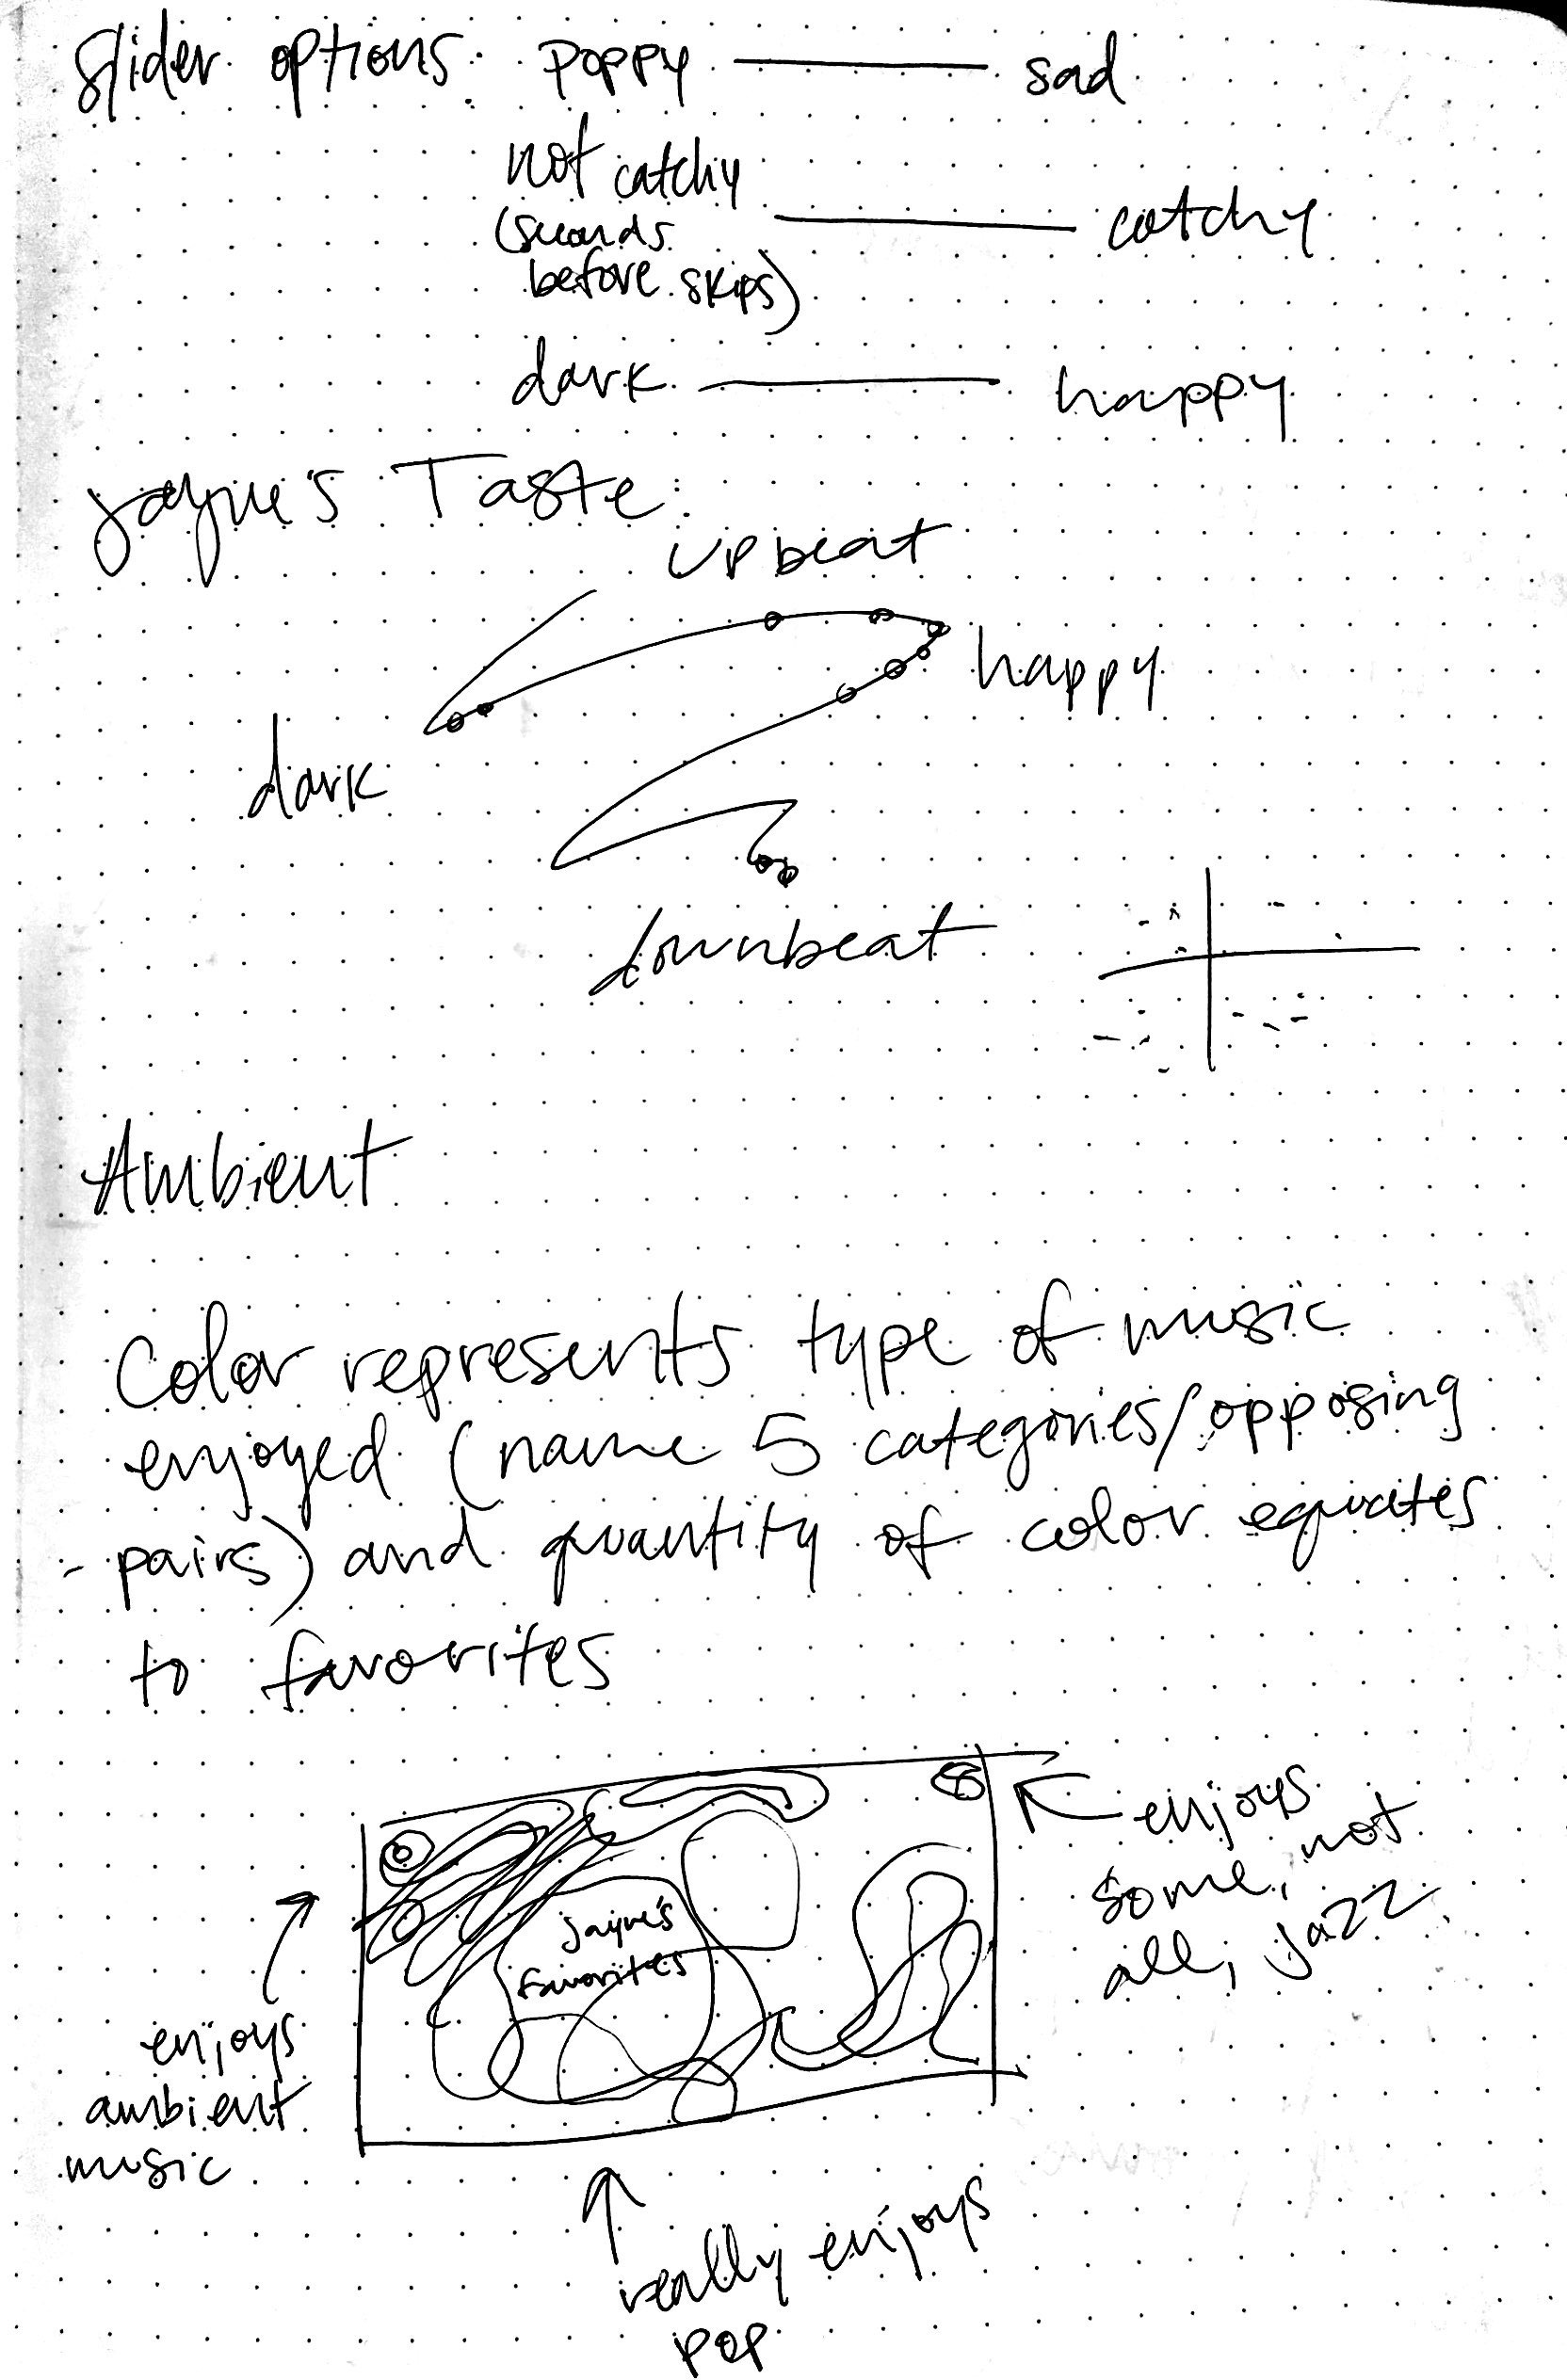 slider options: poppy — sad
not catchy
(seconds
before skips)
catchy
dark — happy
Jayne's Taste:
upbeat
happy
dark
downbeat
Ambient
Color represents type of music
enjoyed (name 5 categories/opposing
pairs) and quantity of color equates
to favorites
enjoys
some, not
all, jazz
Jayne's
favorites
enjoys
ambient
music
really enjoys
pop